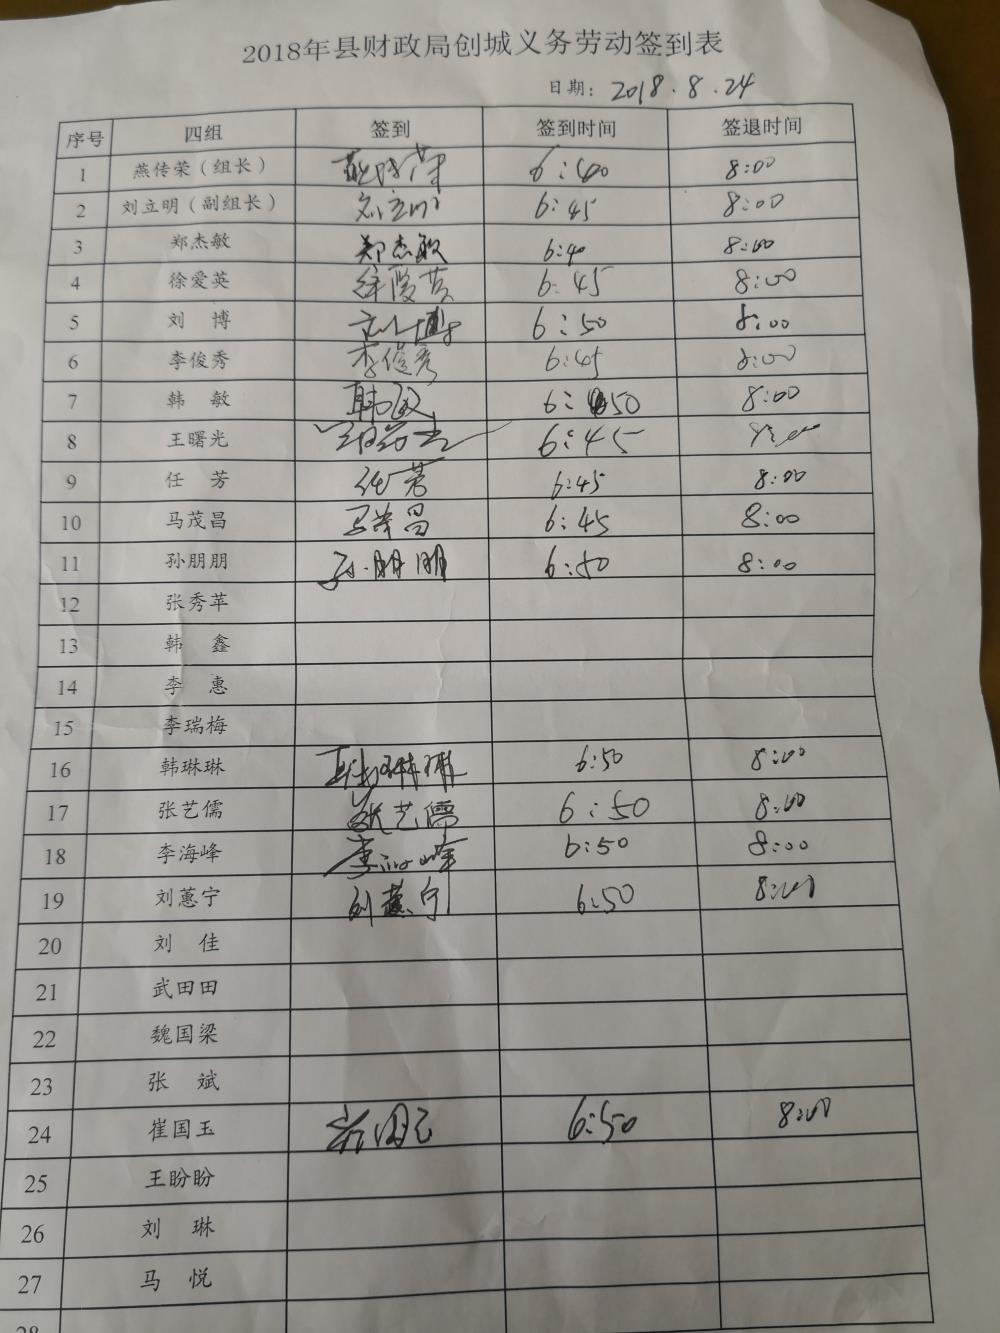 2018年县财政局创城义务劳动签到表
日期：2018.8.24
序号 四组 签到 签到时间 签退时间
1 燕传荣（组长） 燕传荣 6:40 8:00
2 刘立明（副组长） 刘立明 6:45 8:00
3 郑杰敏 郑杰敏 6:40 8:00
4 徐爱英 徐爱英 6:45 8:00
5 刘 博 刘博 6:50 8:00
6 李俊秀 李俊秀 6:45 8:00
7 韩 敏 韩敏 6:50 8:00
8 王曙光 王曙光 6:45 8:00
9 任 芳 任芳 6:45 8:00
10 马茂昌 马茂昌 6:45 8:00
11 孙朋朋 孙朋朋 6:50 8:00
12 张秀苹
13 韩 鑫
14 李 惠
15 李瑞梅
16 韩琳琳 韩琳琳 6:50 8:00
17 张艺儒 张艺儒 6:50 8:00
18 李海峰 李海峰 6:50 8:00
19 刘蕙宁 刘蕙宁 6:50 8:00
20 刘 佳
21 武田田
22 魏国梁
23 张 斌
24 崔国玉 崔国玉 6:50 8:00
25 王盼盼
26 刘 琳
27 马 悦
28